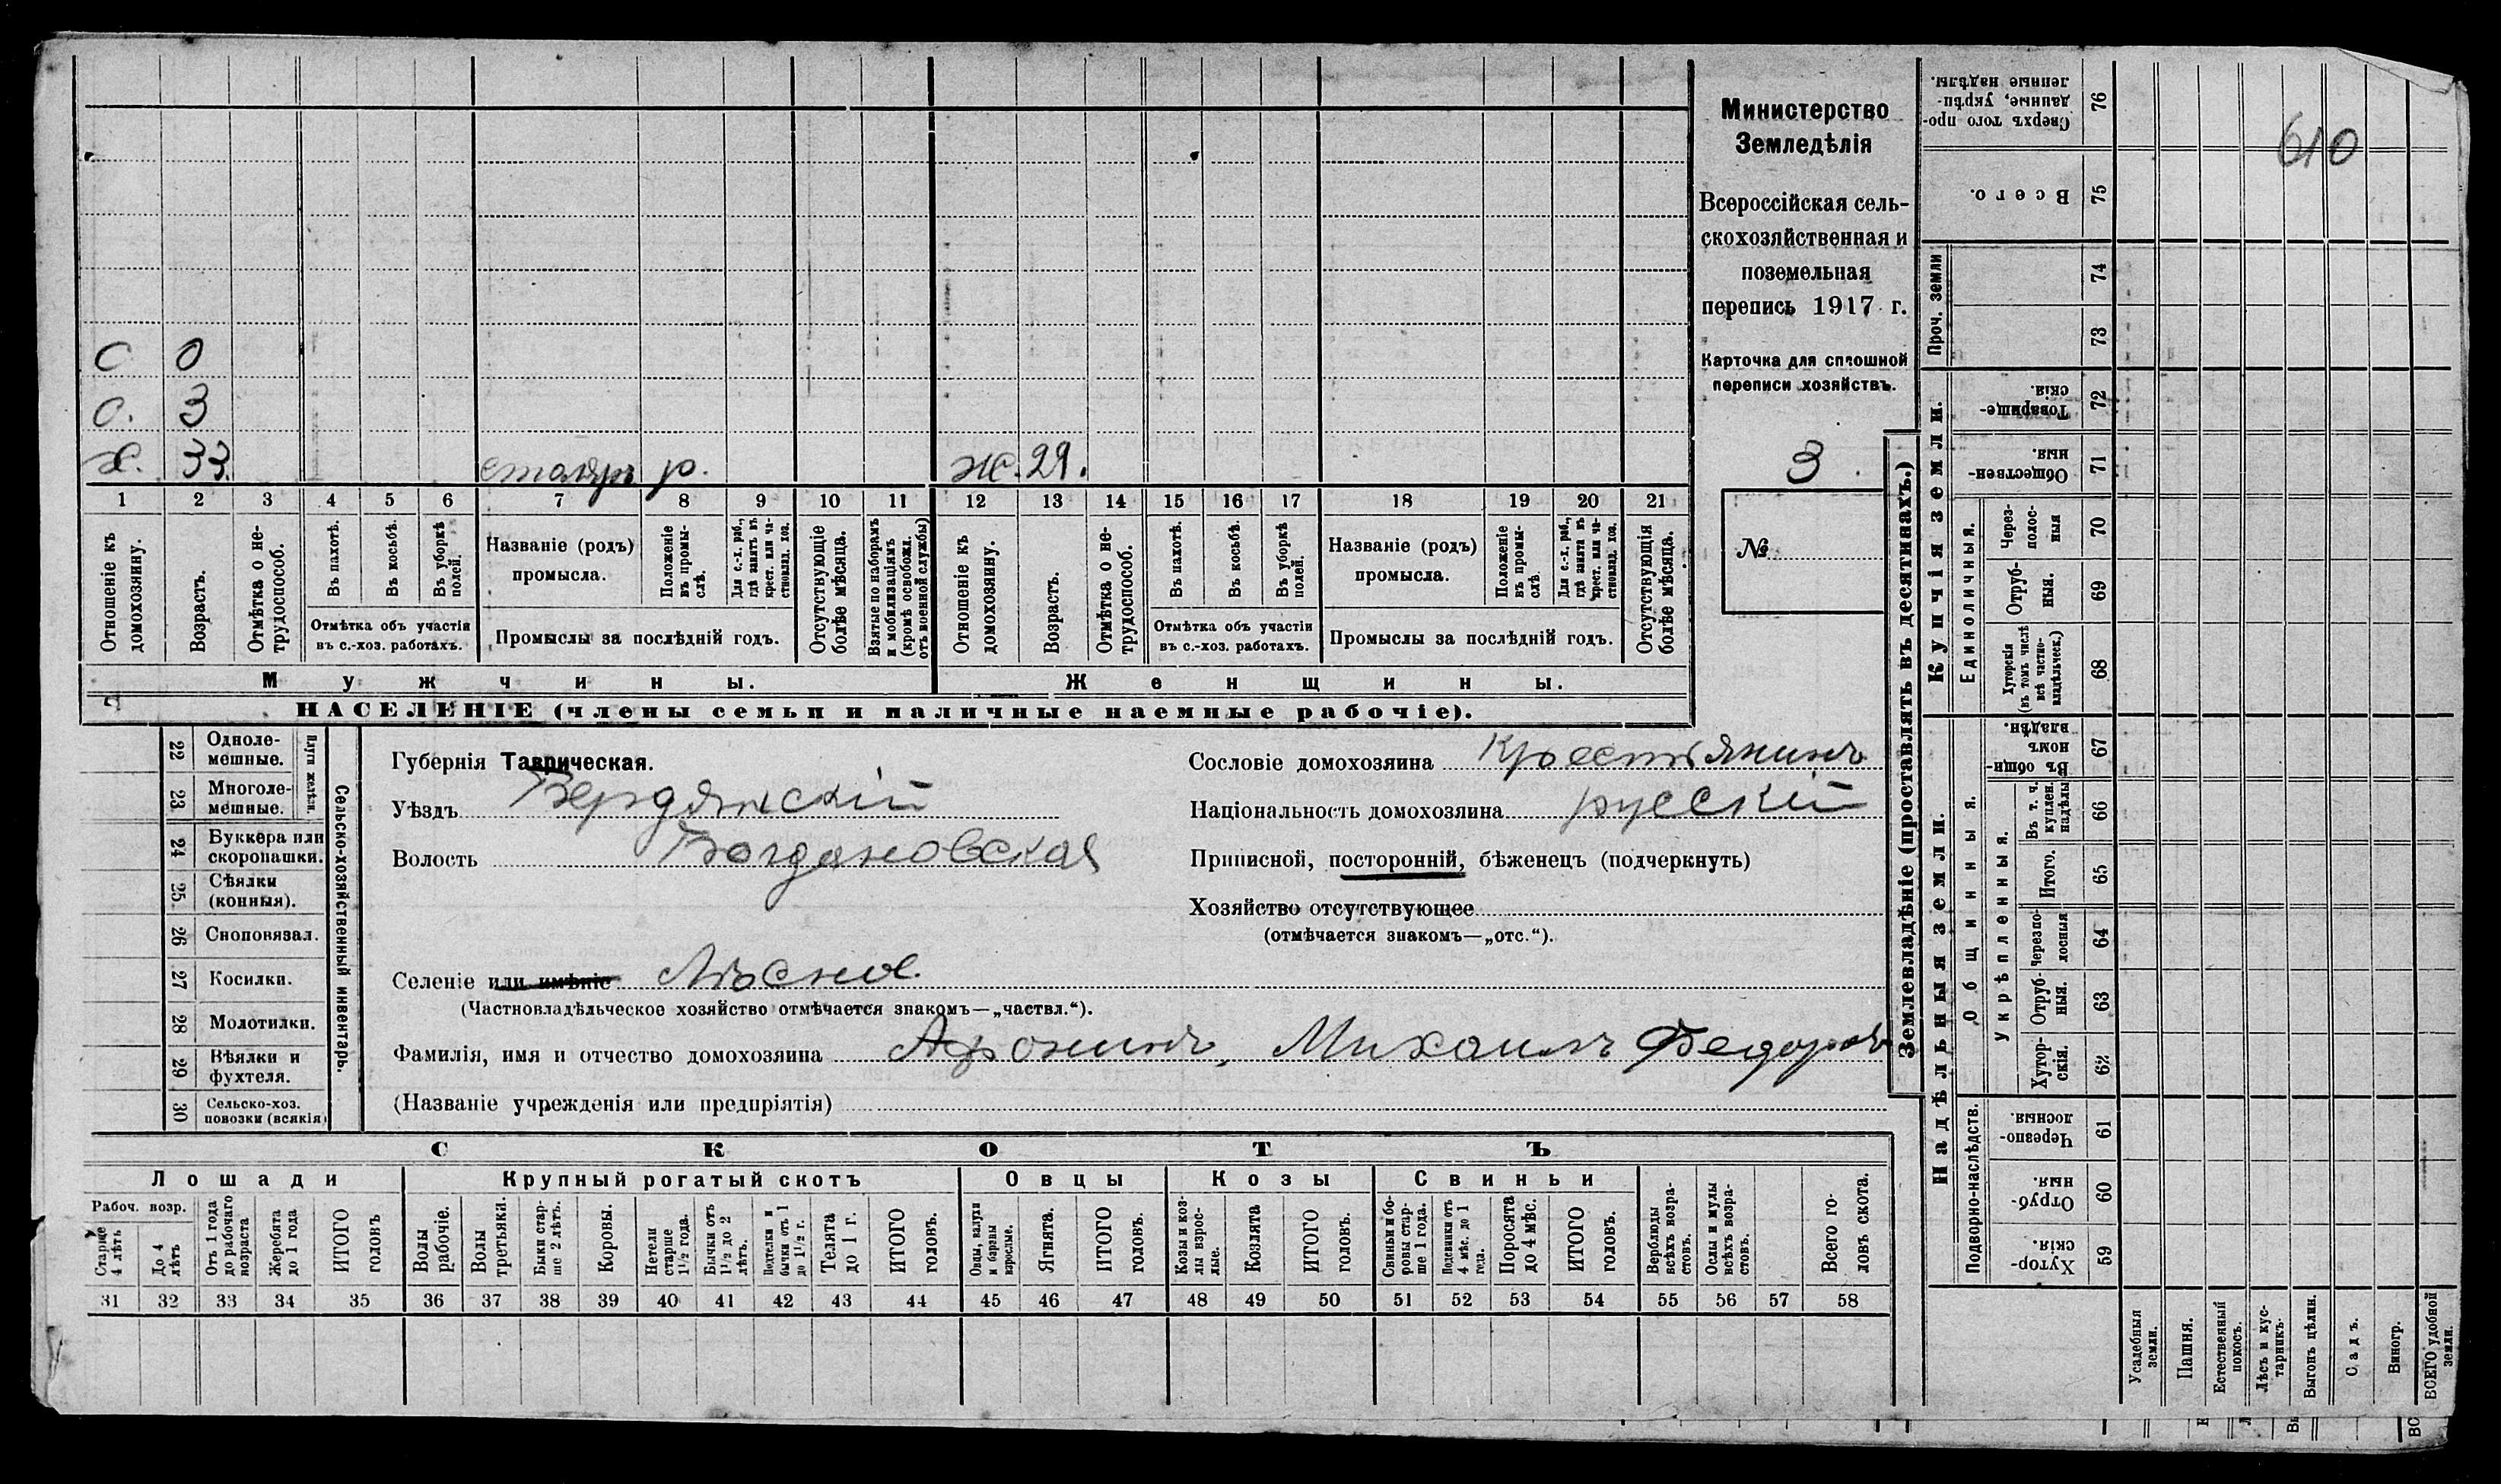 610
Министерство
Земледѣлія
Всероссійская сель-
скохозяйственная и
поземельная
перепись 1917 г.
Карточка для сплошной
переписи хозяйствъ.
3
№
с 0
с. 3
х. 33. столяръ р. ж. 29.
1 2 3 4 5 6 7 8 9 10 11 12 13 14 15 16 17 18 19 20 21
Отношеніе къ домохозяину.
Возрастъ.
Отмѣтка о не-трудоспособ.
Въ пахотѣ.
Въ косьбѣ.
Въ уборкѣ полей.
Отмѣтка объ участіи
въ с.-хоз. работахъ.
Названіе (родъ)
промысла.
Положеніе въ промы-слѣ.
Для с.-х. раб., гдѣ занятъ въ крест. или ча-стновлад. хоз.
Промыслы за послѣдній годъ.
Отсутствующіе болѣе мѣсяца.
Взятые по наборамъ и мобилизаціямъ (кромѣ освобожд. отъ военной службы)
Отношеніе къ домохозяину.
Возрастъ.
Отмѣтка о не-трудоспособ.
Въ пахотѣ.
Въ косьбѣ.
Въ уборкѣ полей.
Отмѣтка объ участіи
въ с.-хоз. работахъ.
Названіе (родъ)
промысла.
Положеніе въ промы-слѣ.
Для с.-х. раб., гдѣ занята въ крест. или ча-стновлад. хоз.
Промыслы за послѣдній годъ.
Отсутствующія болѣе мѣсяца.
Мужчины. Женщины.
НАСЕЛЕНІЕ (члены семьи и наличные наемные рабочіе).
22 Одноле-мешные.
23 Многоле-мешные.
Плуги желѣзн.
24 Буккера или скоропашки.
25 Сѣялки (конныя).
26 Сноповязал.
27 Косилки.
28 Молотилки.
29 Вѣялки и фухтеля.
30 Сельско-хоз. повозки (всякія)
Сельско-хозяйственный инвентарь.
Губернія Таврическая.
Уѣздъ Бердянскій
Волость Богдановская
Селеніе или имѣніе Лѣсное
(Частновладѣльческое хозяйство отмѣчается знакомъ—„частвл.“).
Фамилія, имя и отчество домохозяина Афонинъ, Михаилъ Федоровъ
(Названіе учрежденія или предпріятія)
Сословіе домохозяина Крестьянинъ
Національность домохозяина русскій
Приписной, посторонній, бѣженецъ (подчеркнуть)
Хозяйство отсутствующее
(отмѣчается знакомъ—„отс.“).
СКОТЪ
Лошади Крупный рогатый скотъ Овцы Козы Свиньи
Рабоч. возр.
Старше 4 лѣтъ
До 4 лѣтъ
Отъ 1 года до рабочаго возраста
Жеребята до 1 года
ИТОГО головъ
Волы рабочіе.
Волы третьяки.
Быки стар-ше 2 лѣтъ.
Коровы.
Нетели старше 1½ года.
Бычки отъ 1½ до 2 лѣтъ.
Подтелки и бычки отъ 1 до 1½ г.
Телята до 1 г.
ИТОГО головъ.
Овцы, валухи и бараны взрослые.
Ягнята.
ИТОГО головъ.
Козы и коз-лы взрос-лые.
Козлята
ИТОГО головъ.
Свиньи и бо-ровы стар-ше 1 года.
Подсвинки отъ 4 мѣс. до 1 года.
Поросята до 4 мѣс.
ИТОГО головъ.
Верблюды всѣхъ возра-стовъ.
Ослы и мулы всѣхъ возра-стовъ.
Всего го-ловъ скота.
31 32 33 34 35 36 37 38 39 40 41 42 43 44 45 46 47 48 49 50 51 52 53 54 55 56 57 58
Землевладѣніе (проставлять въ десятинахъ.)
Сверхъ того про-данные, укрѣп-ленные надѣлы. 76
Всего. 75
Проч. земли 74
73
Купчія земли.
Товарище-скія. 72
Обществен-ныя. 71
Единоличныя.
Через-полос-ныя 70
Отруб-ныя. 69
Хуторскія (въ томъ числѣ всѣ частно-владѣльческ.) 68
Надѣльныя земли.
Общинныя.
Въ общи-номъ владѣн. 67
Укрѣпленныя.
Въ т. ч. куплен. надѣлы 66
Итого. 65
Черезпо-лосныя 64
Отруб-ныя. 63
Хутор-скія. 62
Подворно-наслѣдств.
Черезпо-лосныя 61
Отруб-ныя. 60
Хутор-скія. 59
Усадебныя земли.
Пашня.
Естественный покосъ.
Лѣсъ и кус-тарникъ.
Выгонъ цѣлин.
Садъ.
Виногр.
ВСЕГО удобной земли.